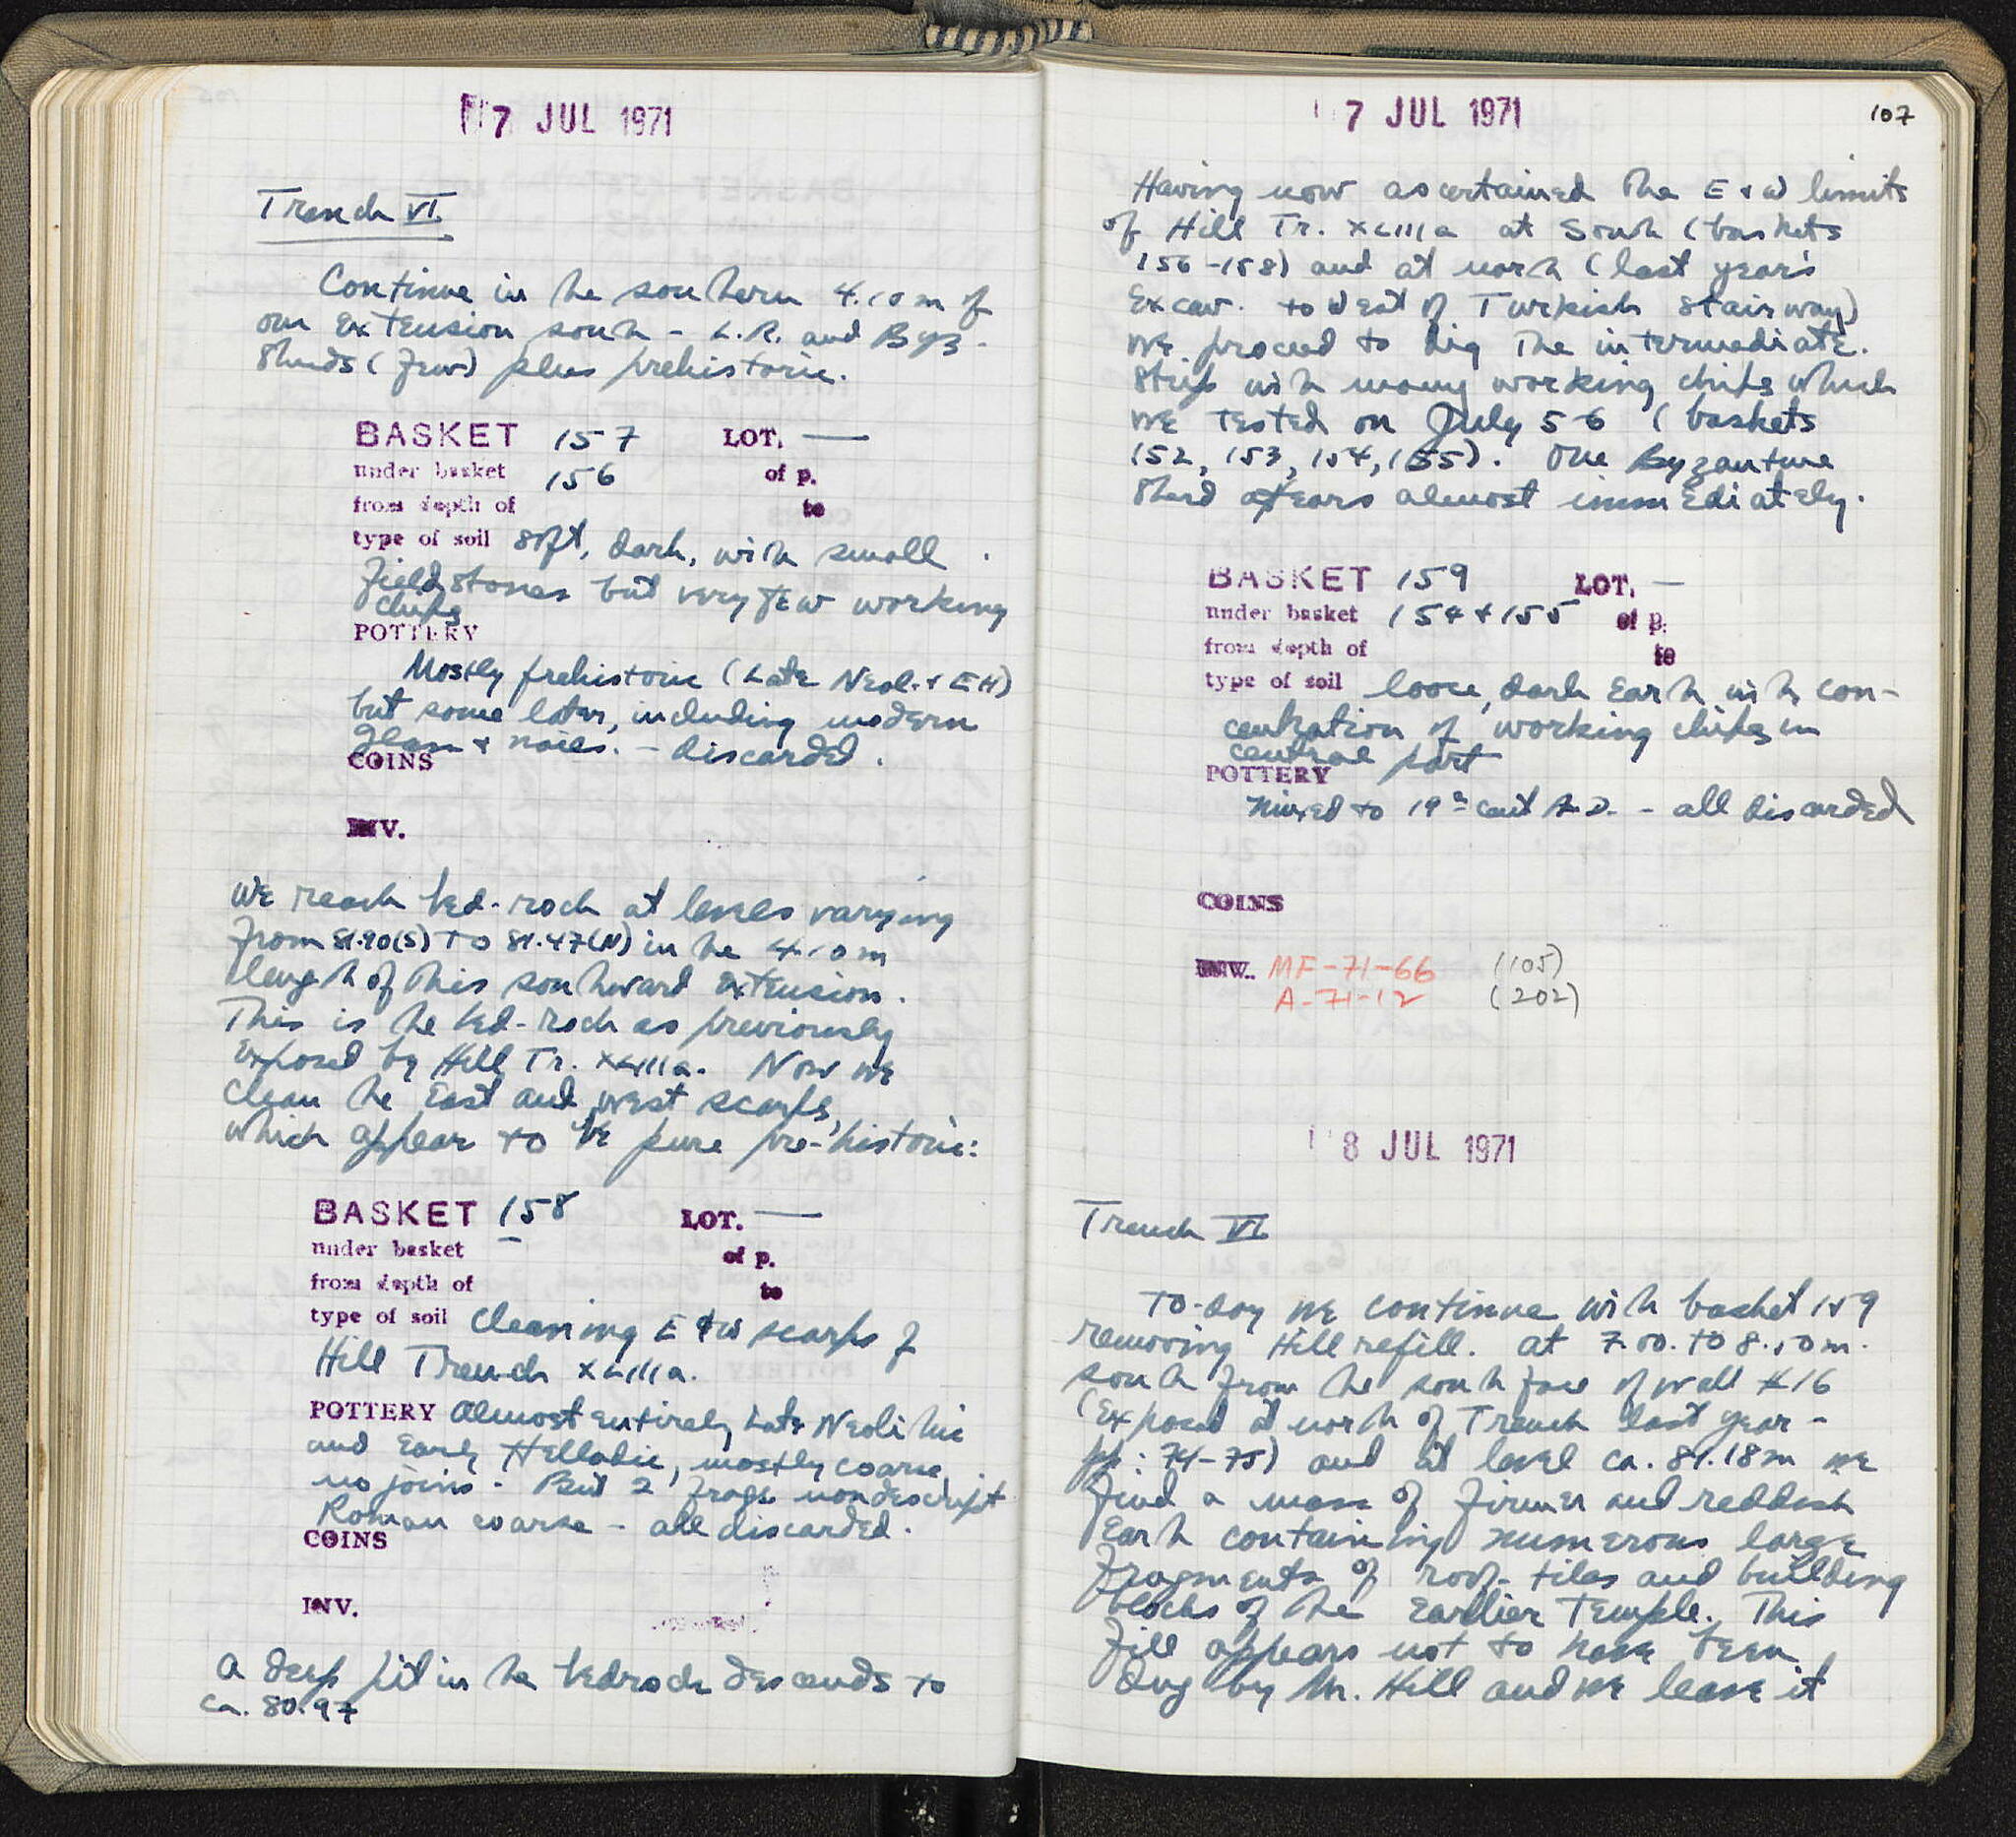 7 JUL 1971
Trench VI
Continue in the southern 4.10m of
our extension south – L.R. and Byz.
sherds (few) plus prehistoric.
BASKET 157 LOT. —
under basket 156 of p.
from depth of to
type of soil soft, dark, with small
field stones but very few working
chips
POTTERY
Mostly prehistoric (Late Neol. + EH)
but some later, including modern
glass + nails. – discarded.
COINS
INV.
We reach bed-rock at levels varying
from 81.90(S) to 81.47(N) in the 4.10m
length of this southward extension.
This is the bed-rock as previously
exposed by Hill Tr. XLIIIa. Now we
clean the East and west scarps,
which appear to be pure pre-historic:
BASKET 158 LOT. —
under basket – of p.
from depth of to
type of soil Cleaning E & W scarps of
Hill Trench XLIIIa.
POTTERY Almost entirely Late Neolithic
and Early Helladic, mostly coarse,
no joins. But 2 frags nondescript
Roman coarse – all discarded.
COINS
INV.
A deep pit in the bedrock descends to
ca. 80.97
7 JUL 1971
107
Having now ascertained the E + W limits
of Hill Tr. XLIIIa at South (baskets
156-158) and at north (last year's
excav. to west of Turkish stairway)
we proceed to dig the intermediate
strip with many working chips which
we tested on July 5-6 (baskets
152, 153, 154, 155). One Byzantine
sherd appears almost immediately.
BASKET 159 LOT. —
under basket 154 + 155 of p.
from depth of to
type of soil loose, dark earth with con-
centration of working chips in
central part
POTTERY
mixed to 19th cent A.D. – all discarded
COINS
INV. MF-71-66 (105)
A-71-12 (202)
8 JUL 1971
Trench VI
To-day we continue with basket 159
removing Hill refill. at 7.00 to 8.10m.
south from the south face of wall #16
(exposed at north of Trench last year –
pp: 74-75) and at level ca. 81.18m we
find a mass of firmer and reddish
Earth containing numerous large
fragments of roof-tiles and building
blocks of the Earlier Temple. This
fill appears not to have been
dug by Mr. Hill and we leave it